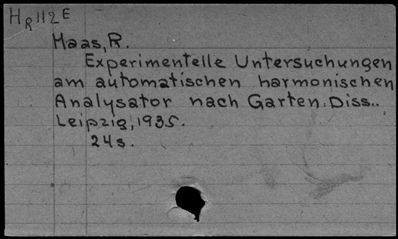 HR112E
Maas, R.
Experimentelle Untersuchungen
am automatischen harmonischen
Analysator nach Garten. Diss..
Leipzig, 1935.
24s.